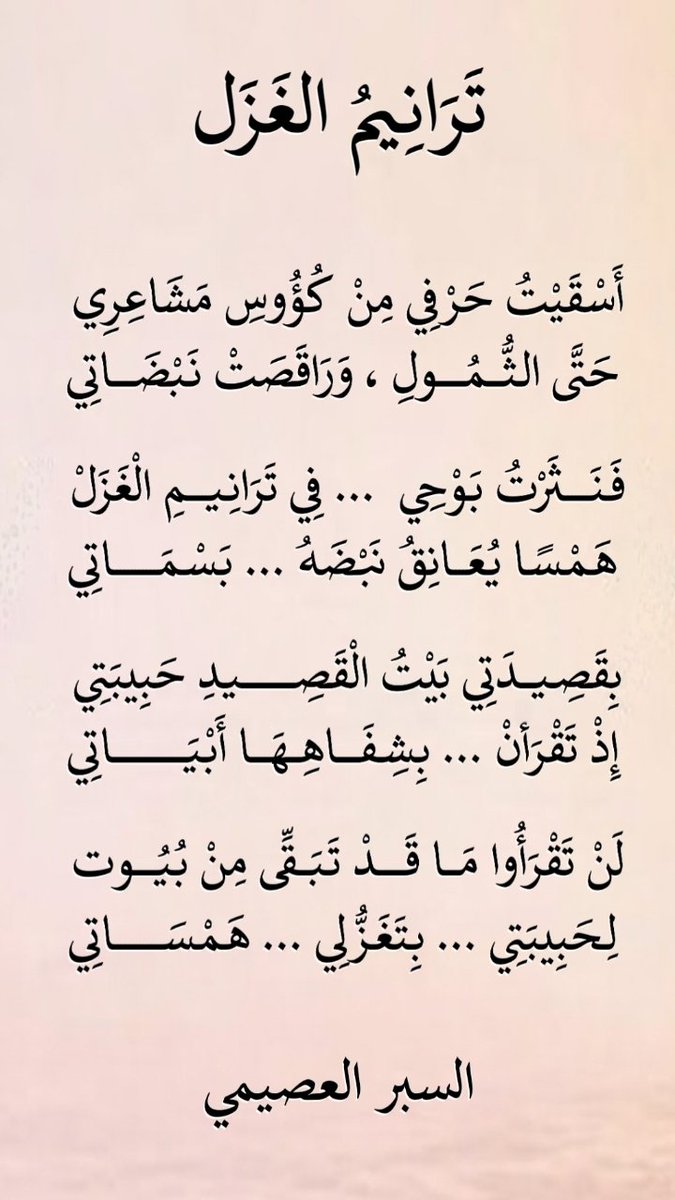 تَرَانِيمُ الغَزَل
أَسْقَيْتُ حَرْفِي مِنْ كُؤُوسِ مَشَاعِرِي
حَتَّى الثُّمُولِ ، وَرَاقَصَتْ نَبْضَاتِي
فَنَثَرْتُ بَوْحِي ... فِي تَرَانِيمِ الْغَزَلْ
هَمْسًا يُعَانِقُ نَبْضَهُ ... بَسْمَاتِي
بِقَصِيدَتِي بَيْتُ الْقَصِيدِ حَبِيبَتِي
إِذْ تَقْرَأنْ ... بِشِفَاهِهَا أَبْيَاتِي
لَنْ تَقْرَأُوا مَا قَدْ تَبَقِّى مِنْ بُيُوت
لِحَبِيبَتِي ... بِتَغَزُّلِي ... هَمْسَاتِي
السبر العصيمي